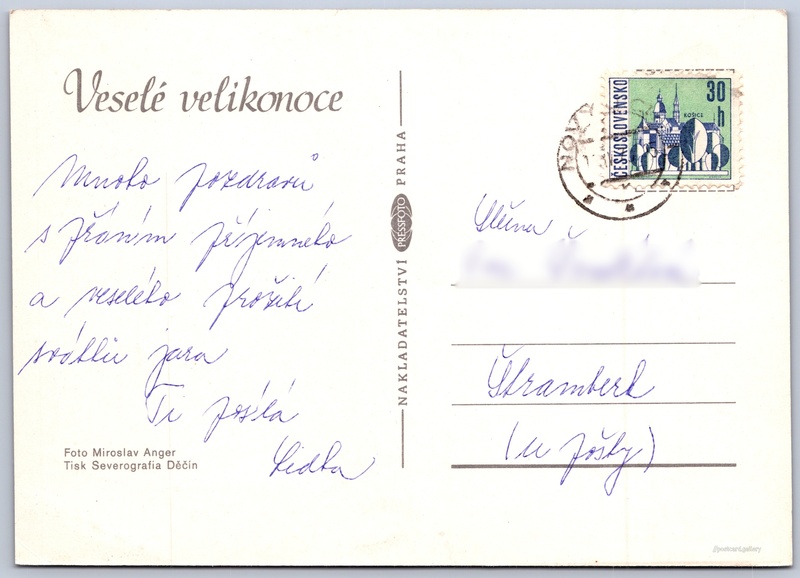 Veselé velikonoce
Mnoho pozdravů
s přáním příjemného
a veselého prožití
svátků jara
Ti posílá
Lidka
Foto Miroslav Anger
Tisk Severografia Děčín
NAKLADATELSTVÍ PRESSFOTO PRAHA
ČESKOSLOVENSKO
30
h
KOŠICE
NOVÝ
Slečna
Štramberk
(u pošty)